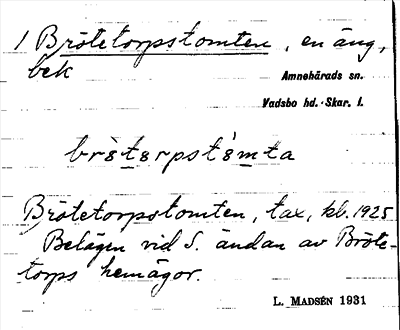 1 Brötetorpstomten, en äng,
bek
Amnehärads sn.
Vadsbo hd. Skar. l.
Brötetorpstomten, tax, kb. 1925
Belägen vid S. ändan av Bröte-
torps hemägor.
L. MADSÉN 1931